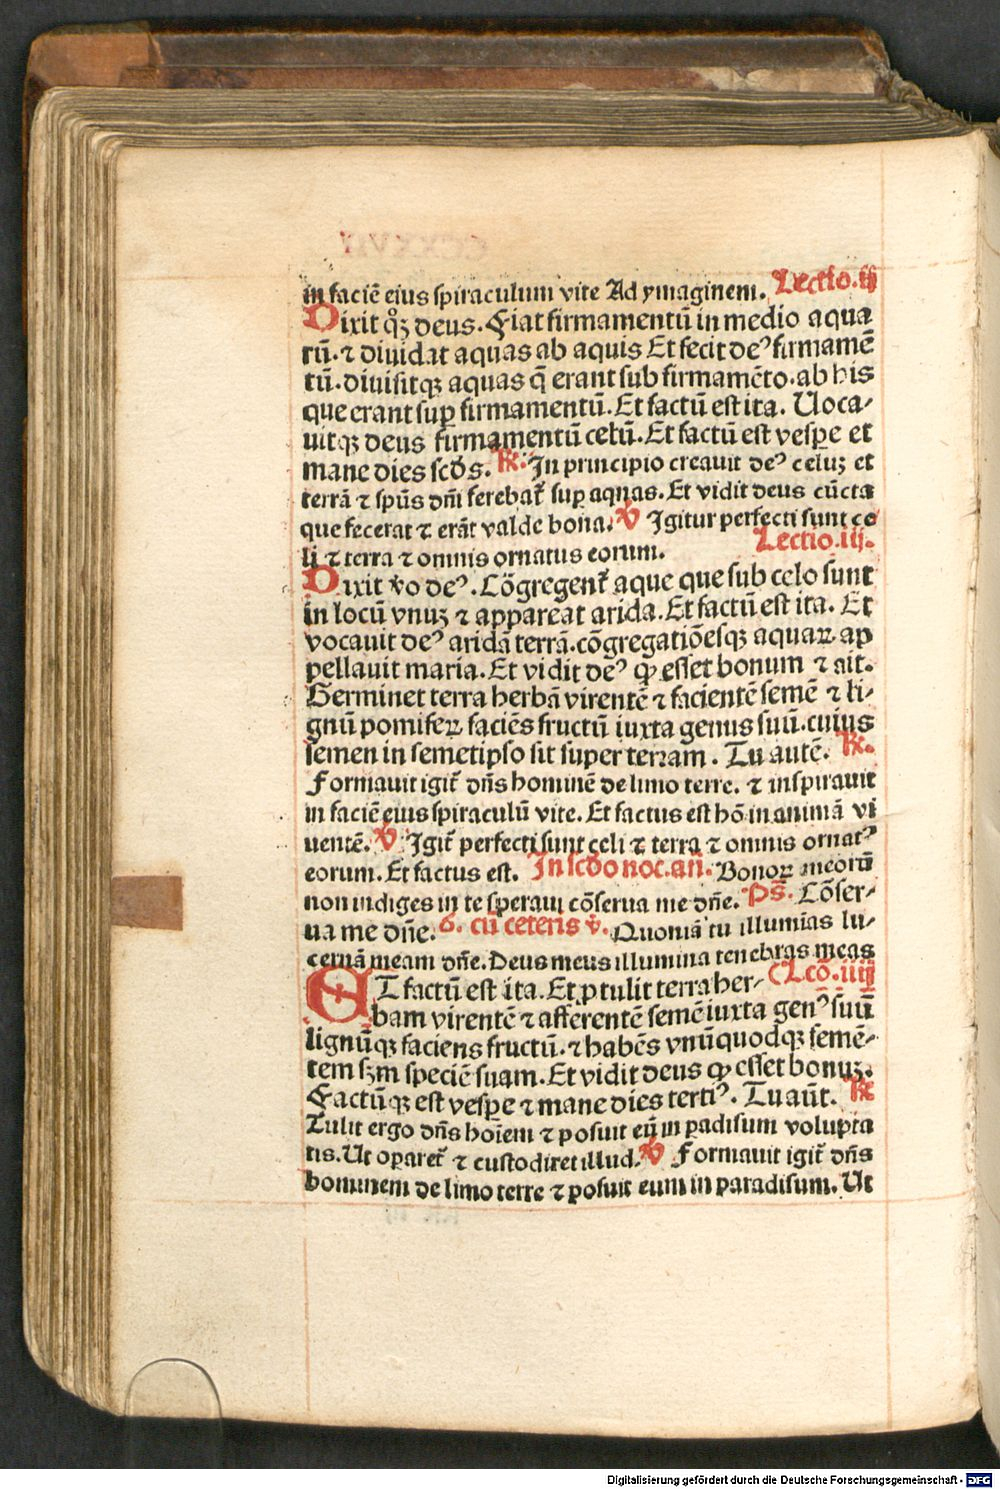 in faciē eius spiraculum vite Ad ymaginem. Lectio.ij
Dixit qȝ deus. Fiat firmamentū in medio aqua
rū. ⁊ diuidat aquas ab aquis Et fecit deꝰ firmamē
tū. diuisitqꝫ aquas q̄ erant sub firmamēto. ab his
que erant suꝑ firmamentū. Et factū est ita. Uoca⸗
uitqꝫ deus firmamentū celū. Et factū est vesꝑe et
mane dies scd̄s. ℟. In principio creauit deꝰ celuꝫ et
terrā ⁊ spūs dn̄i ferebat᷑ suꝑ aquas. Et vidit deus cūcta
que fecerat ⁊ erāt valde bona. ℣ Igitur perfecti sunt ce
li ⁊ terra ⁊ omnis ornatus eorum. Lectio.iij.
Dixit v̄o deꝰ. Cōgregent᷑ aque que sub celo sunt
in locū vnuꝫ ⁊ appareat arida. Et factū est ita. Et
vocauit deꝰ aridā terrā. cōgregatiōesqꝫ aquaꝝ ap
pellauit maria. Et vidit deꝰ ꝙ esset bonum ⁊ ait.
Germinet terra herbā virentē ⁊ facientē semē ⁊ li⸗
gnū pomifeꝝ faciēs fructū iuxta genus suū. cuius
semen in semetipso sit super terram. Tu autē. ℟.
Formauit igit᷑ dn̄s hominē de limo terre. ⁊ inspirauit
in faciē eius spiraculū vite. Et factus est hō in animā vi
uentē. ℣ Igit᷑ perfecti sunt celi ⁊ terra ⁊ omnis ornatꝰ
eorum. Et factus est. In scd̄o noc. an̄. Bonoꝝ meorū
non indiges in te speraui cōserua me dn̄e. Ps̄. Cōser⸗
ua me dn̄e. 6. cū ceteris v̄. Quoniā tu illumīas lu⸗
cernā meam dn̄e. Deus meus illumina tenebras meas
ET factū est ita. Et ꝓtulit terra her⸗ Lcō.iiij
bam virentē ⁊ afferentē semē iuxta genꝰ suū
lignūqꝫ faciens fructū. ⁊ habēs vnūquodqꝫ semē⸗
tem sꝫm speciē suam. Et vidit deus ꝙ esset bonuꝫ.
Factūqꝫ est vesꝑe ⁊ mane dies tertiꝰ. Tu aūt. ℟
Tulit ergo dn̄s hoīem ⁊ posuit eū in ꝑadisum volupta
tis. Ut oꝑaret᷑ ⁊ custodiret illud. ℣ Formauit igit᷑ dn̄s
hominem de limo terre ⁊ posuit eum in paradisum. Ut
Digitalisierung gefördert durch die Deutsche Forschungsgemeinschaft - DFG